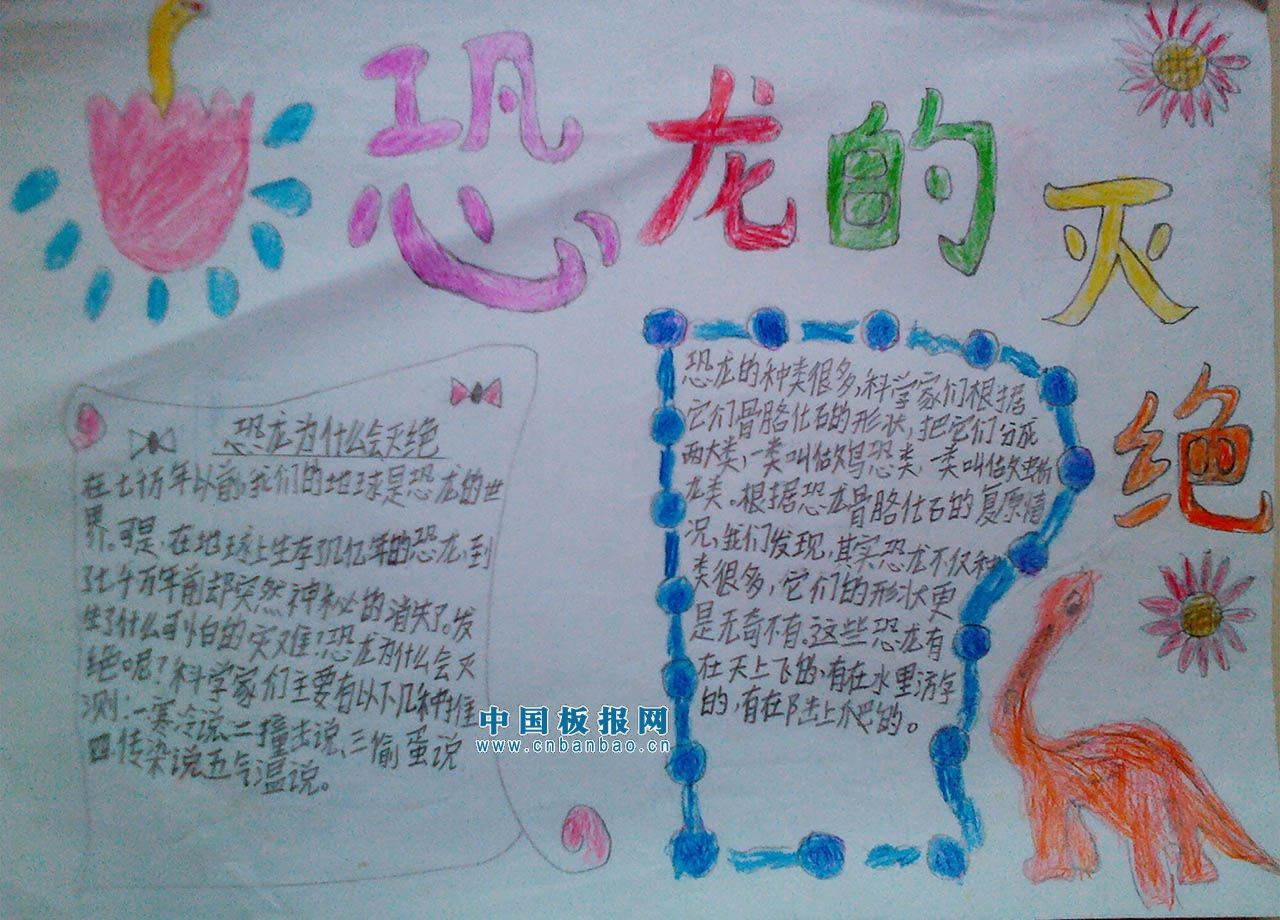 恐龙的灭绝
恐龙为什么会灭绝
在七千万年以前,我们的地球是恐龙的世
界。可是,在地球上生存了几亿年的恐龙,到
了七千万年前却突然神秘的消失了。发
生了什么可怕的灾难?恐龙为什么会灭
绝呢?科学家们主要有以下几种推
测:一寒冷说、二撞击说、三偷蛋说
四、传染说、五气温说。
恐龙的种类很多,科学家们根据
它们骨骼化石的形状,把它们分成
两大类,一类叫做鸟恐类,一类叫做蜥
龙类。根据恐龙骨骼化石的复原情
况,我们发现,其实恐龙不仅种
类很多,它们的形状更
是无奇不有。这些恐龙有
在天上飞的,有在水里游字
的,有在陆上爬的。
中国板报网
www.cnbanbao.cn